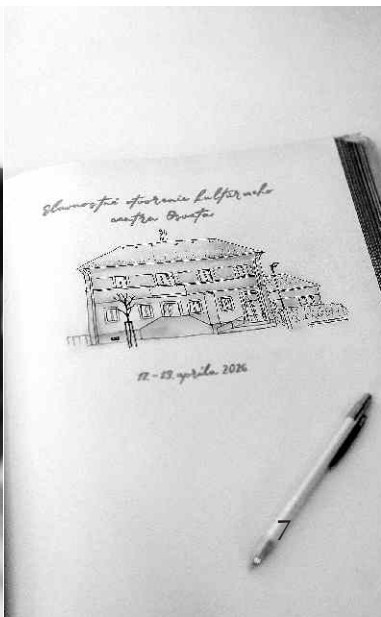 Slavnostné otvorenie kultúrneho
centra Osveta
17.-19. apríla 2026
7